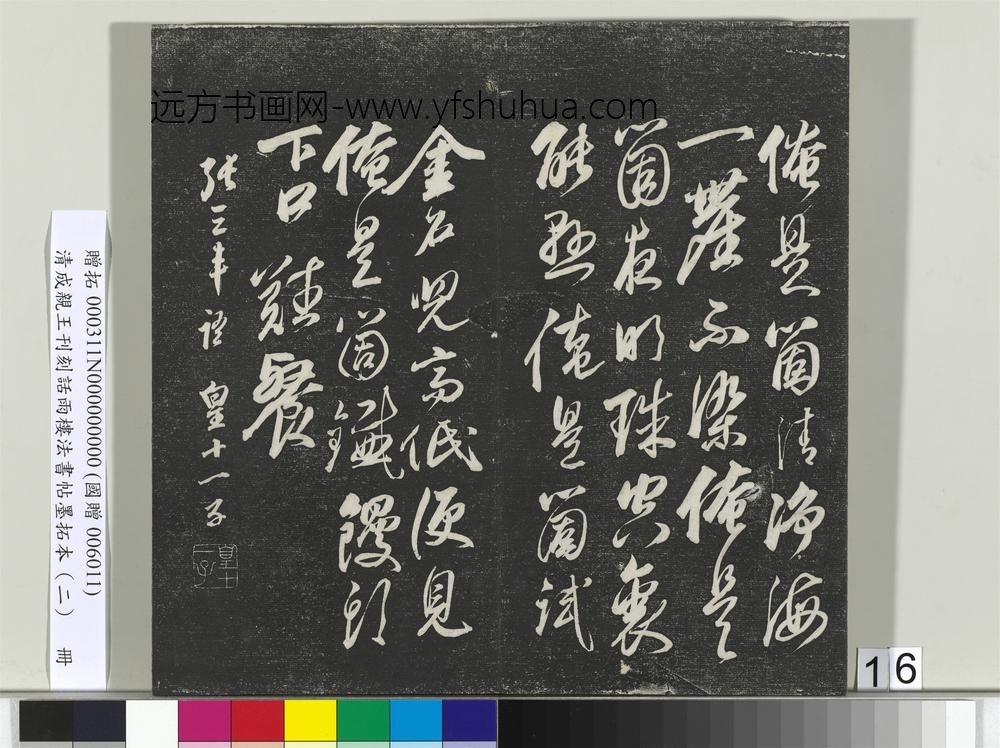 远方书画网-www.yfshuhua.com
俺是箇清淨海
一塵不染俺是
箇夜明珠空裏
能懸俺是箇試
金石兒高低便見
俺是箇鐵饅頭
下口難餐
張三丰語 皇十一子
皇十一子
贈拓 000311N000000000 (國贈 006011)
清成親王刊刻話雨樓法書帖墨拓本（二） 冊
16